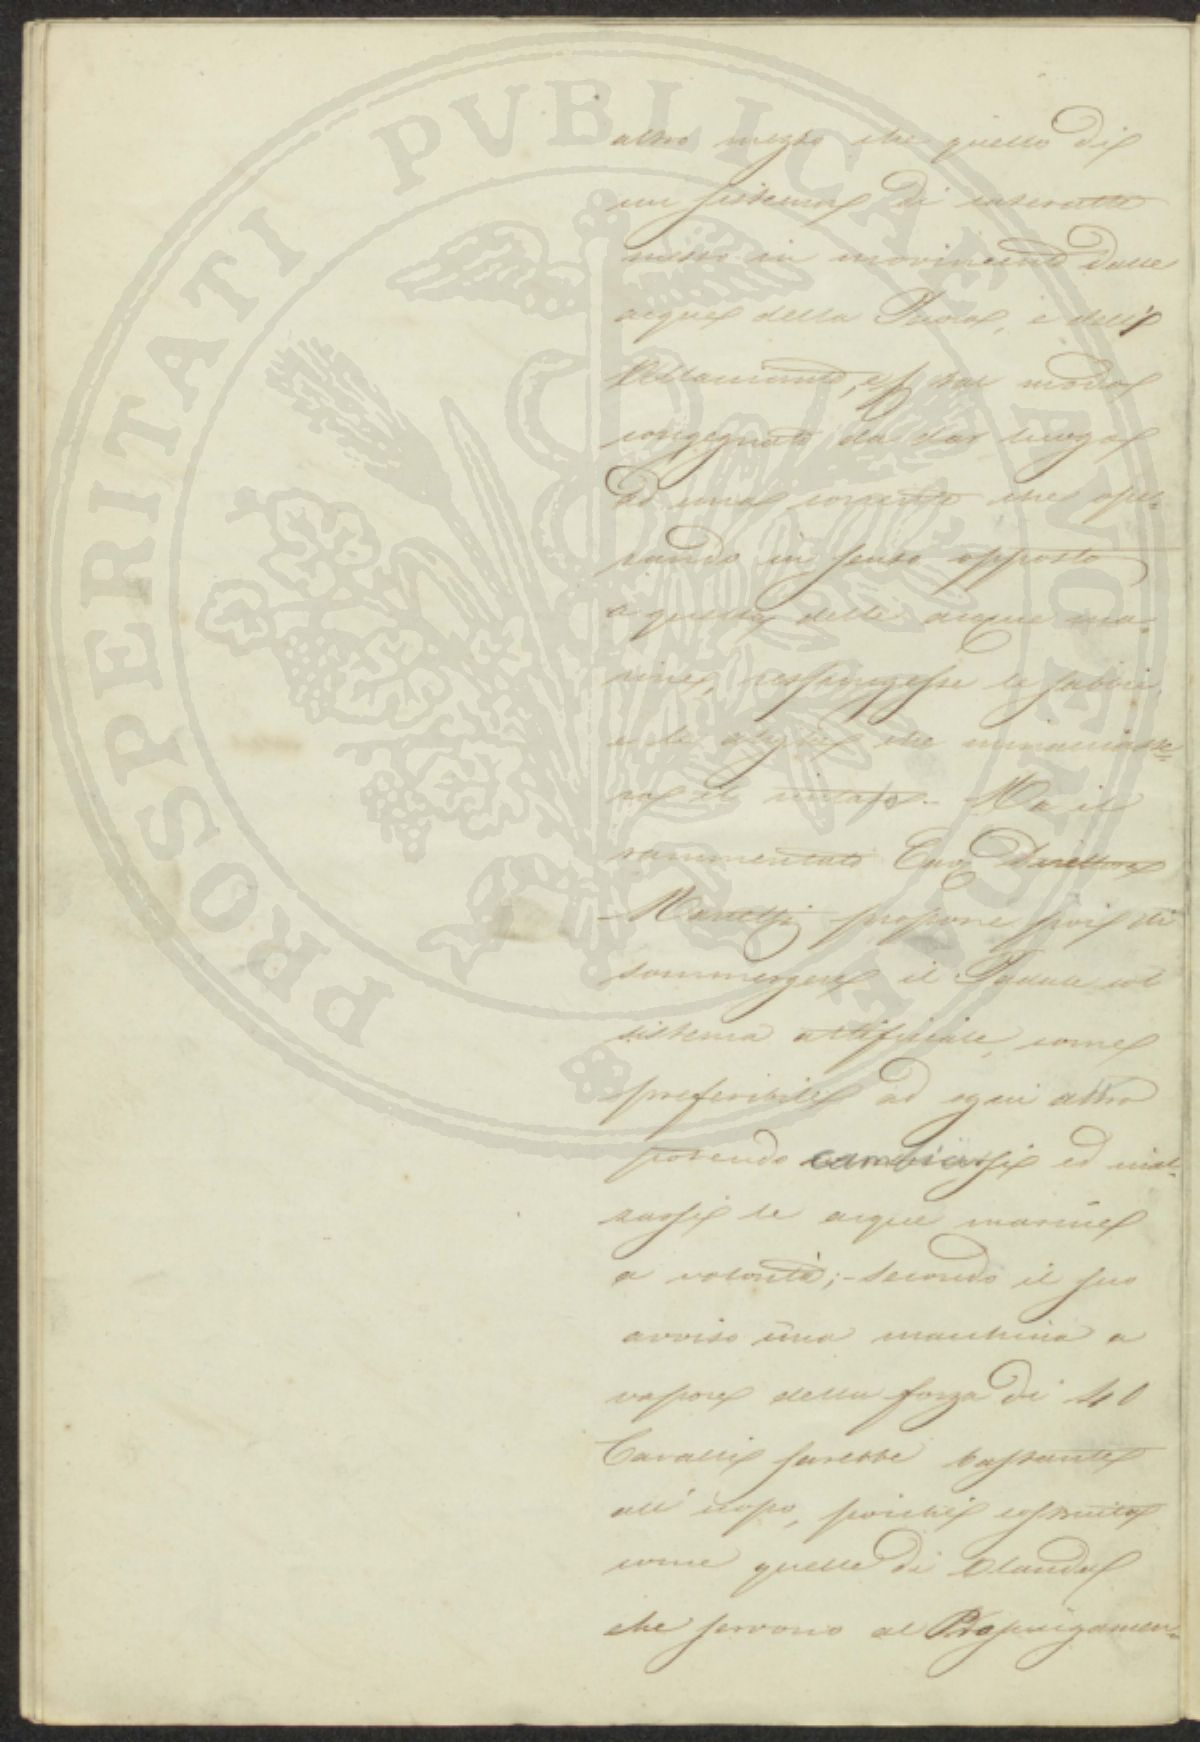 PROSPERITATI PUBLICAE
altro mezzo che quello di
un sistema di
messo in movimento dalle
acque della e dell
in tal modo
congegnato da dar luogo
ad una corrente che ope-
rando in senso opposto
a quello delle acque ma-
rine, respingesse le sabbie
e le alghe che minacciasse-
ro il Ma il
rammentato Cav Direttore
Manetti propone poi di
sommergere il Padule col
sistema artificiale, come
preferibile ad ogni altro
potendo cambiarsi ed inal-
zarsi le acque marine
a volontà; - secondo il suo
avviso una macchina a
vapore della forza di 40
Cavalli sarebbe bastante
all' uopo, poiché costruita
come quelle di Olanda
che servono al Prosciugamen-